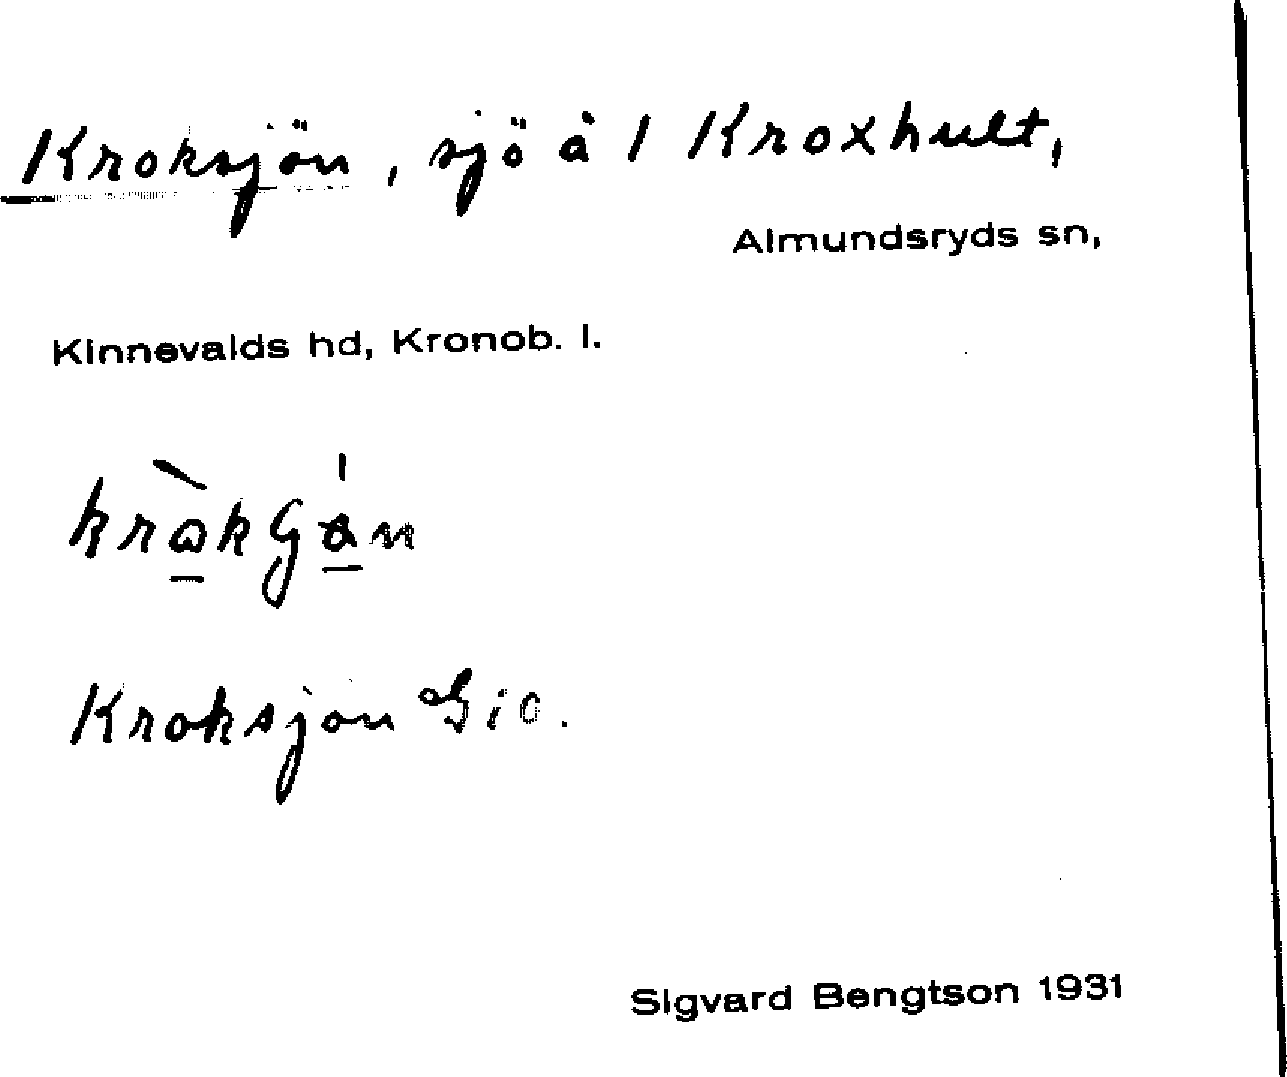 Kroksjön, sjö å 1 Kroxhult,
Almundsryds sn,
Kinnevalds hd, Kronob. l.
Kroksjön
Sigvard Bengtson 1931